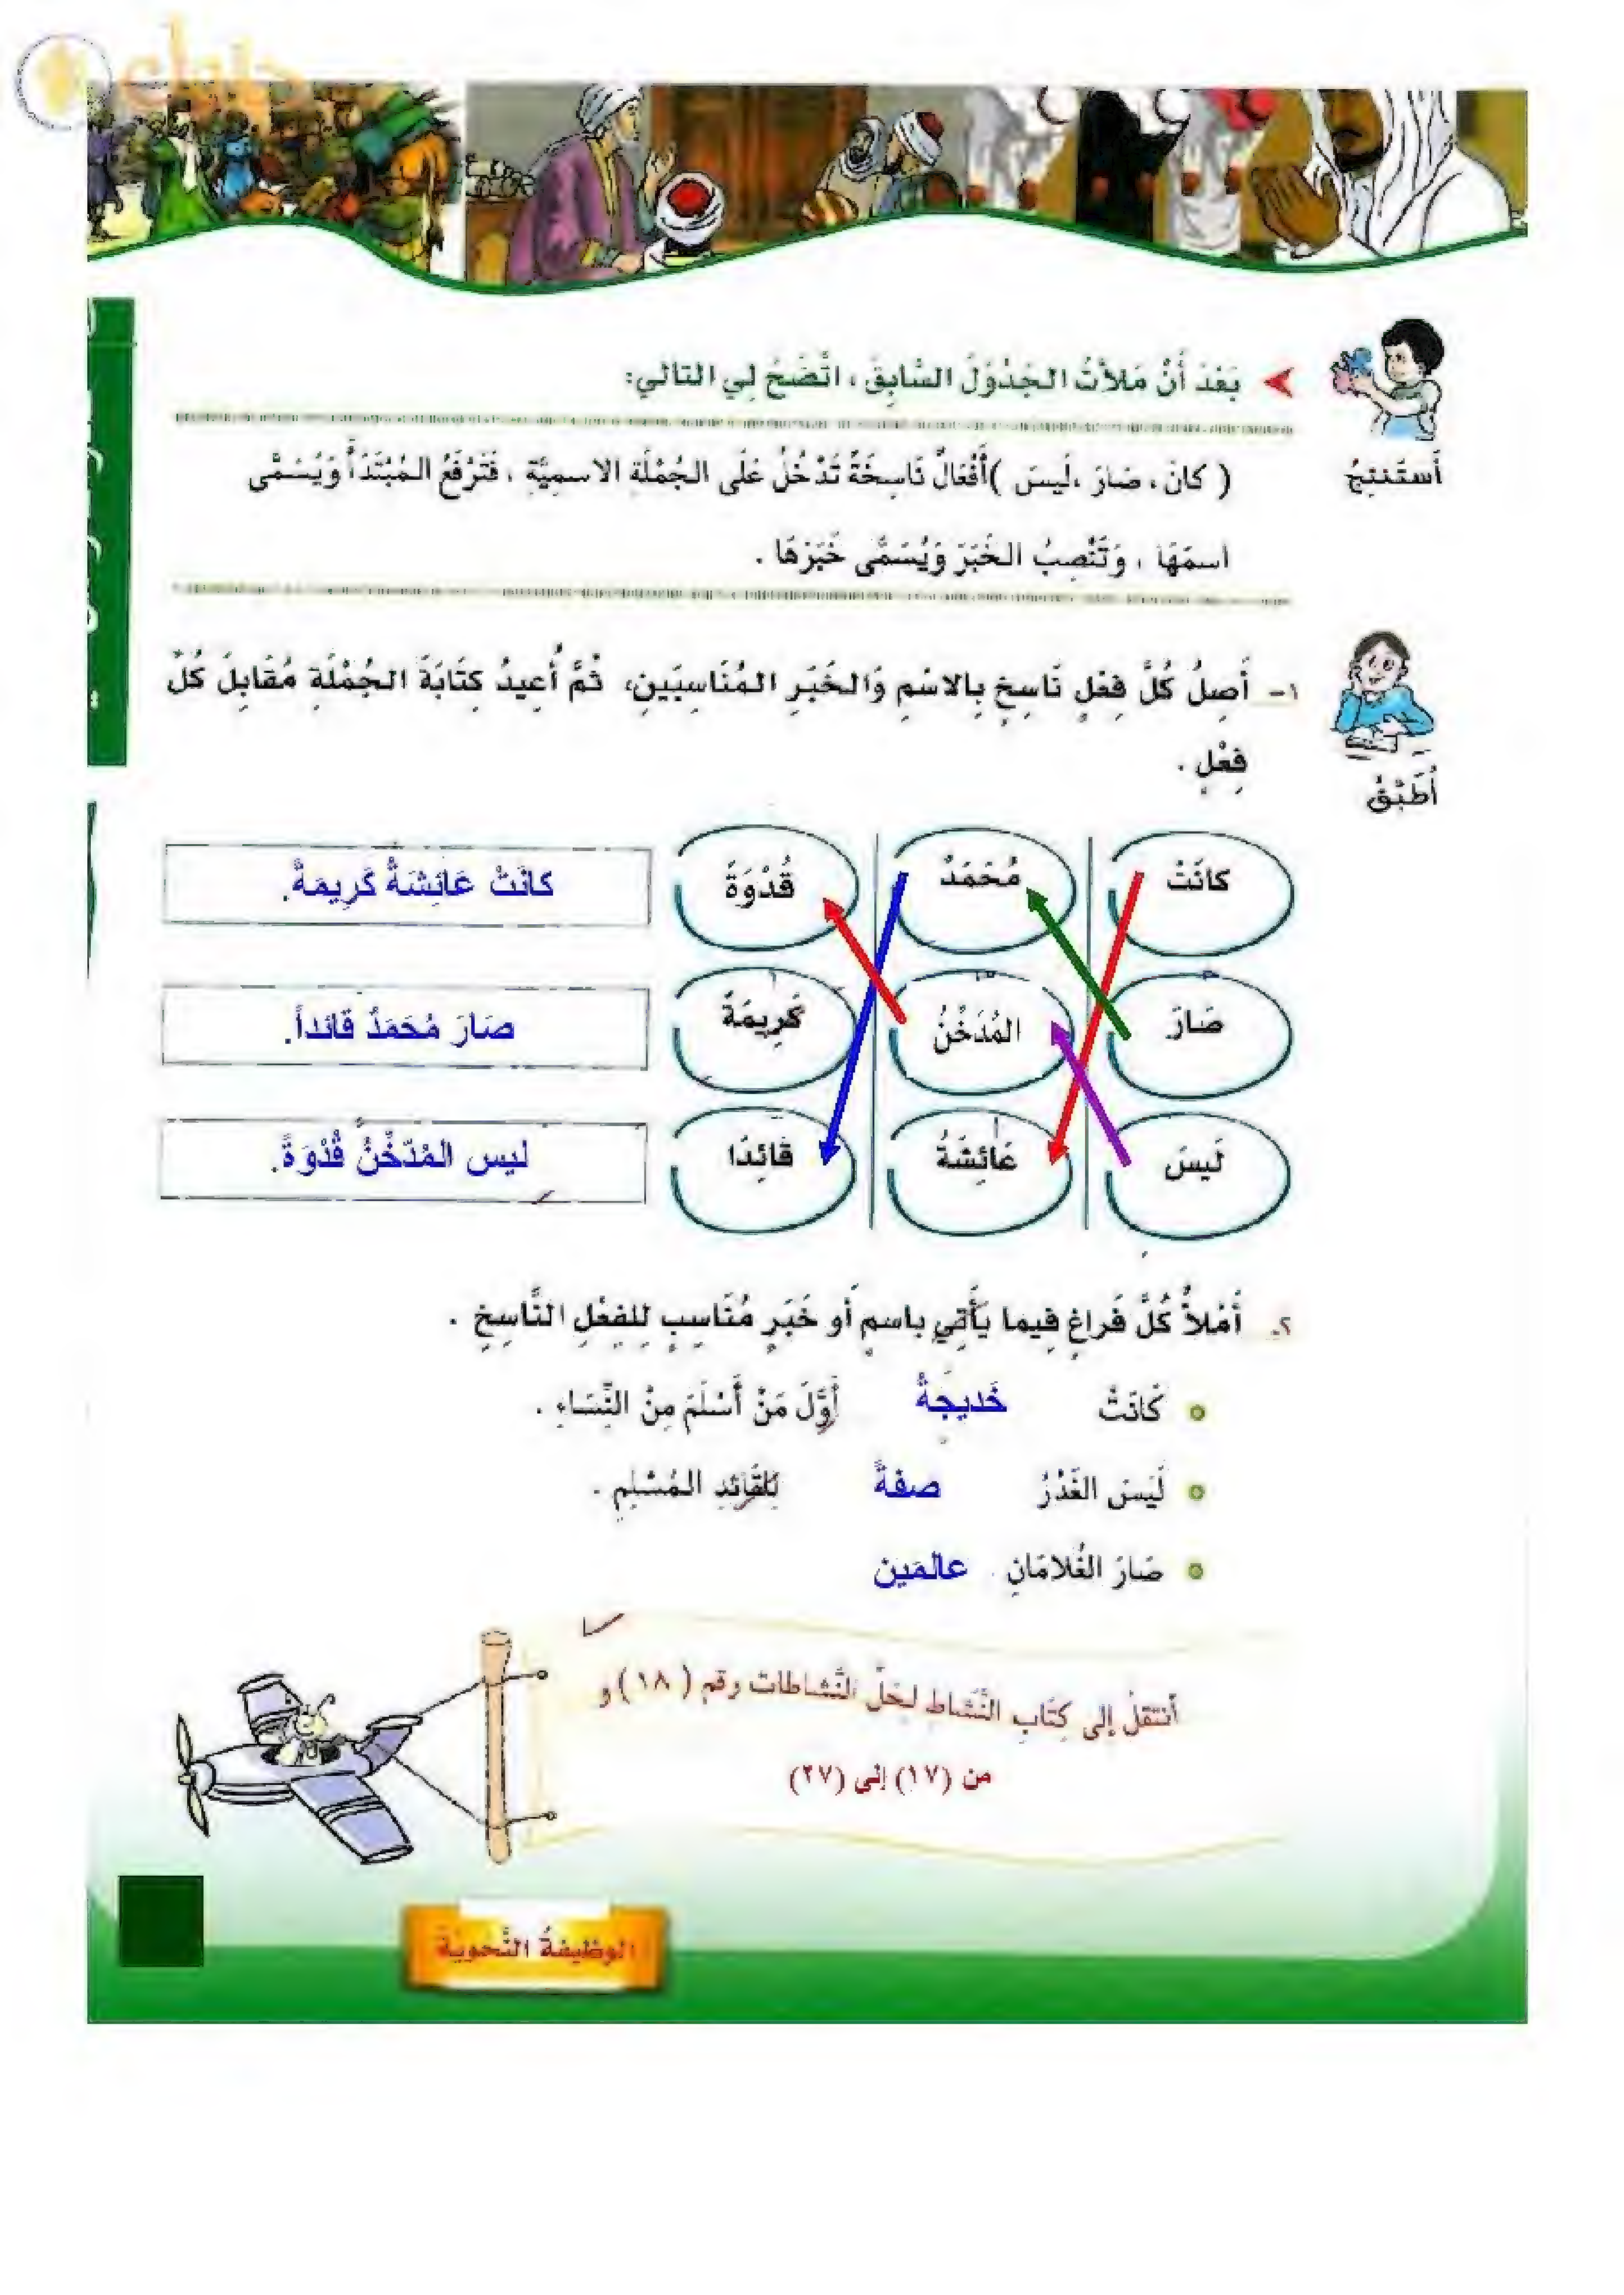 حلول
بَعْدَ أَنْ مَلأْتُ الجَدْوَلَ السَّابِقَ ، اتَّضَحَ لِي التالي:
أَستَنتِجُ
( كانَ ، صَارَ ،لَيسَ )أَفْعَالٌ نَاسِخَةٌ تَدْخُلُ عَلَى الجُمْلَةِ الاسمِيَّةِ ، فَتَرْفَعُ المُبْتَدَأَ وَيُسَمَّى
اسمَهَا ، وَتَنْصِبُ الخَبَرَ وَيُسَمَّى خَبَرَهَا .
١- أَصِلُ كُلَّ فِعْلٍ نَاسِخٍ بِالاسْمِ وَالخَبَرِ المُنَاسِبَينِ، ثُمَّ أُعِيدُ كِتَابَةَ الجُمْلَةِ مُقَابِلَ كُلِّ
فِعْلٍ .
أُطَبِّقُ
كانَتْ مُحَمَدٌ قُدْوَةً كانَتْ عَائِشَةُ كَرِيمَةً.
صَارَ المُدَخِّنُ كَرِيمَةً صَارَ مُحَمَدٌ قَائداً.
لَيسَ عَائِشَةُ قَائِدًا ليس المُدَخِّنُ قُدْوَةً.
٢- أَمْلأُ كُلَّ فَراغٍ فِيما يَأْتِي باسمٍ أَو خَبَرٍ مُنَاسِبٍ لِلفِعْلِ النَّاسِخِ .
كَانَتْ خَديجَةُ أَوَّلَ مَنْ أَسْلَمَ مِنْ النِّسَاءِ .
لَيسَ الغَدْرُ صفةً لِلقَائِدِ المُسْلِمِ .
صَارَ الغُلامَانِ عالمَين
أنتقلُ إلى كِتَابِ النَّشاطِ لحَلِّ النَّشاطات رقم ( ١٨ ) و
من (١٧) إلى (٢٧)
الوظيفةُ النَّحويّة